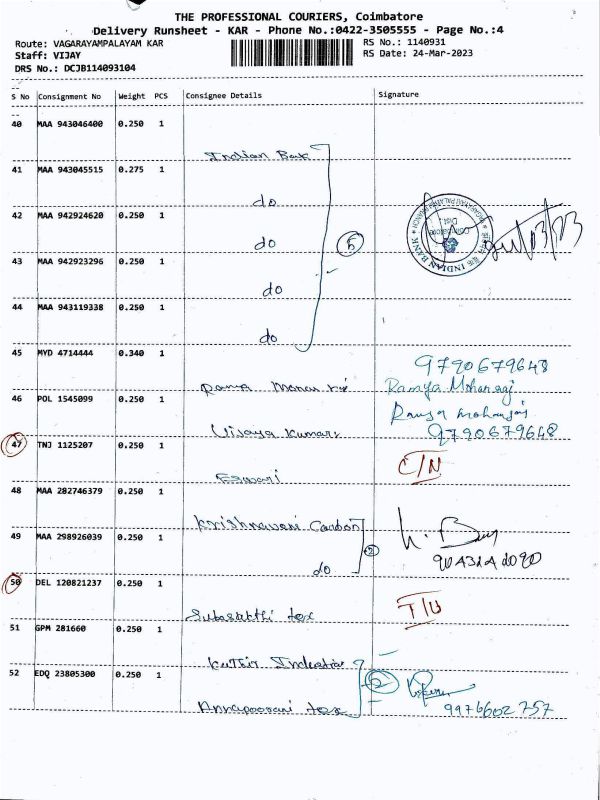 THE PROFESSIONAL COURIERS, Coimbatore
Delivery Runsheet - KAR - Phone No.:0422-3505555 - Page No.:4
Route: VAGARAYAMPALAYAM KAR RS No.: 1140931
Staff: VIJAY RS Date: 24-Mar-2023
DRS No.: DCJB114093104
S No Consignment No Weight PCS Consignee Details Signature
40 MAA 943046400 0.250 1
Indian Bak
41 MAA 943045515 0.275 1
do
42 MAA 942924620 0.250 1
do
5
INDIAN BANK
43 MAA 942923296 0.250 1
do
44 MAA 943119338 0.250 1
do
45 MYD 4714444 0.340 1
9790679648
Ramya Mohanraj
46 POL 1545099 0.250 1
Vijaya Kumari
9790679648
47 TNJ 1125207 0.250 1
C/N
Eswari
48 MAA 282746379 0.250 1
Krishnaveni Carbon
49 MAA 298926039 0.250 1
do 2
50 DEL 120821237 0.250 1
T/U
51 GPM 281660 0.250 1
52 EDQ 23805300 0.250 1
2
Annapoorani tex 9976602757